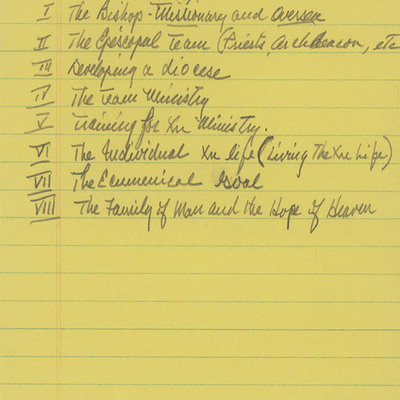 I The Bishop - Missionary and overseer
II The Episcopal Team (Priests, Archdeacon, etc
III Developing a diocese
IV The Team Ministry
V Training for Xn Ministry.
VI The Individual Xn life (Living The Xn Life)
VII The Ecumenical Goal
VIII The Family of Man and the Hope of Heaven